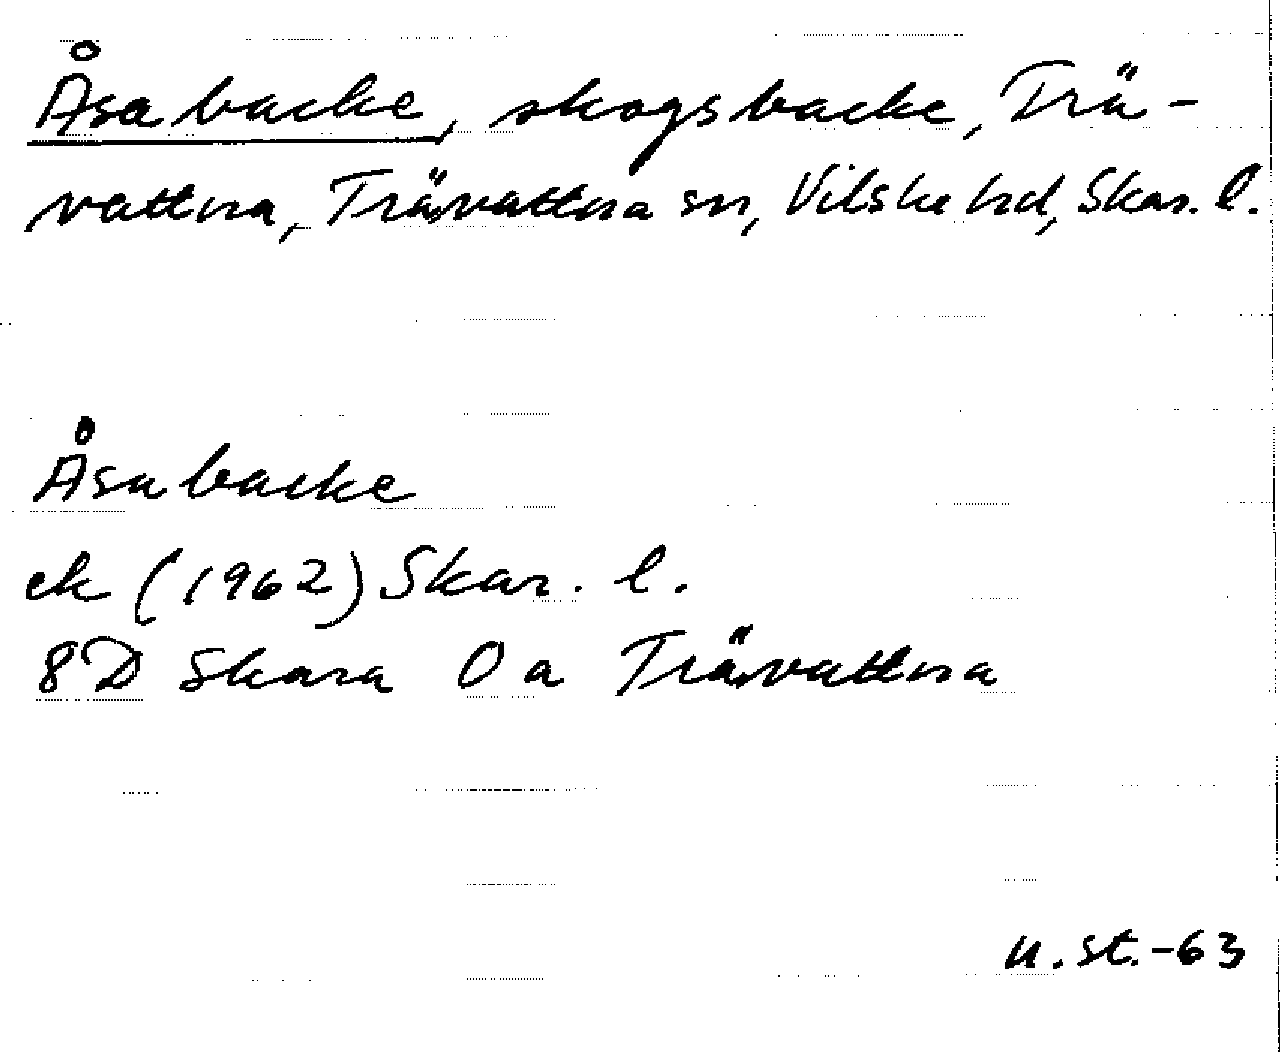 Åsabacke, skogsbacke, Trä-
vattna, Trävattna sn, Vilske hd, Skar. l.
Åsabacke
ek (1962) Skar. l.
8D Skara 0 a Trävattna
u. st. -63